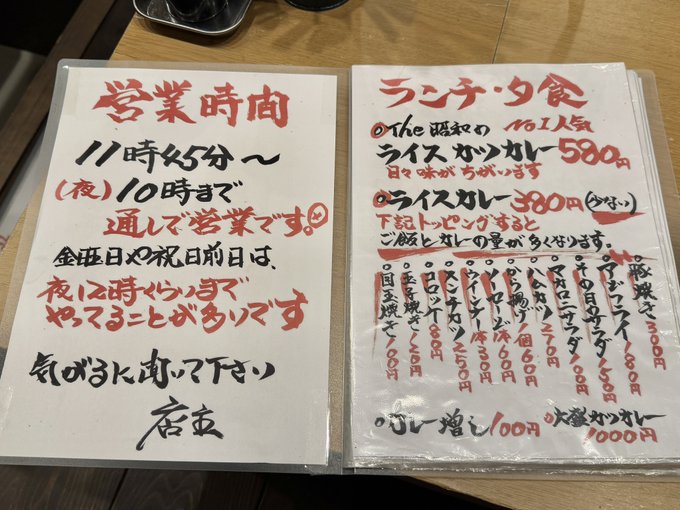 営業時間
11時45分〜
(夜)10時まで
通しで営業です。
金曜日や祝日前日は、
夜12時くらいまで
やってることが多いです
気がるに声って下さい
店主
ランチ・夕食
The 昭和の No1人気
ライスカツカレー 580円
日々味がちがいます
ライスカレー 380円 (少ない)
下記トッピングすると
ご飯とカレーの量が多くなります。
豚焼き 300円
アジフライ 180円
その日のサラダ 150円
マカロニサラダ 100円
ハムカツ 270円
から揚げ 1個60円
ソーセージ 1本60円
ウインナー 1本30円
メンチカツ 250円
コロッケ 80円
玉子焼き 120円
目玉焼き 100円
カレー増し 100円
大盛カツカレー
1000円